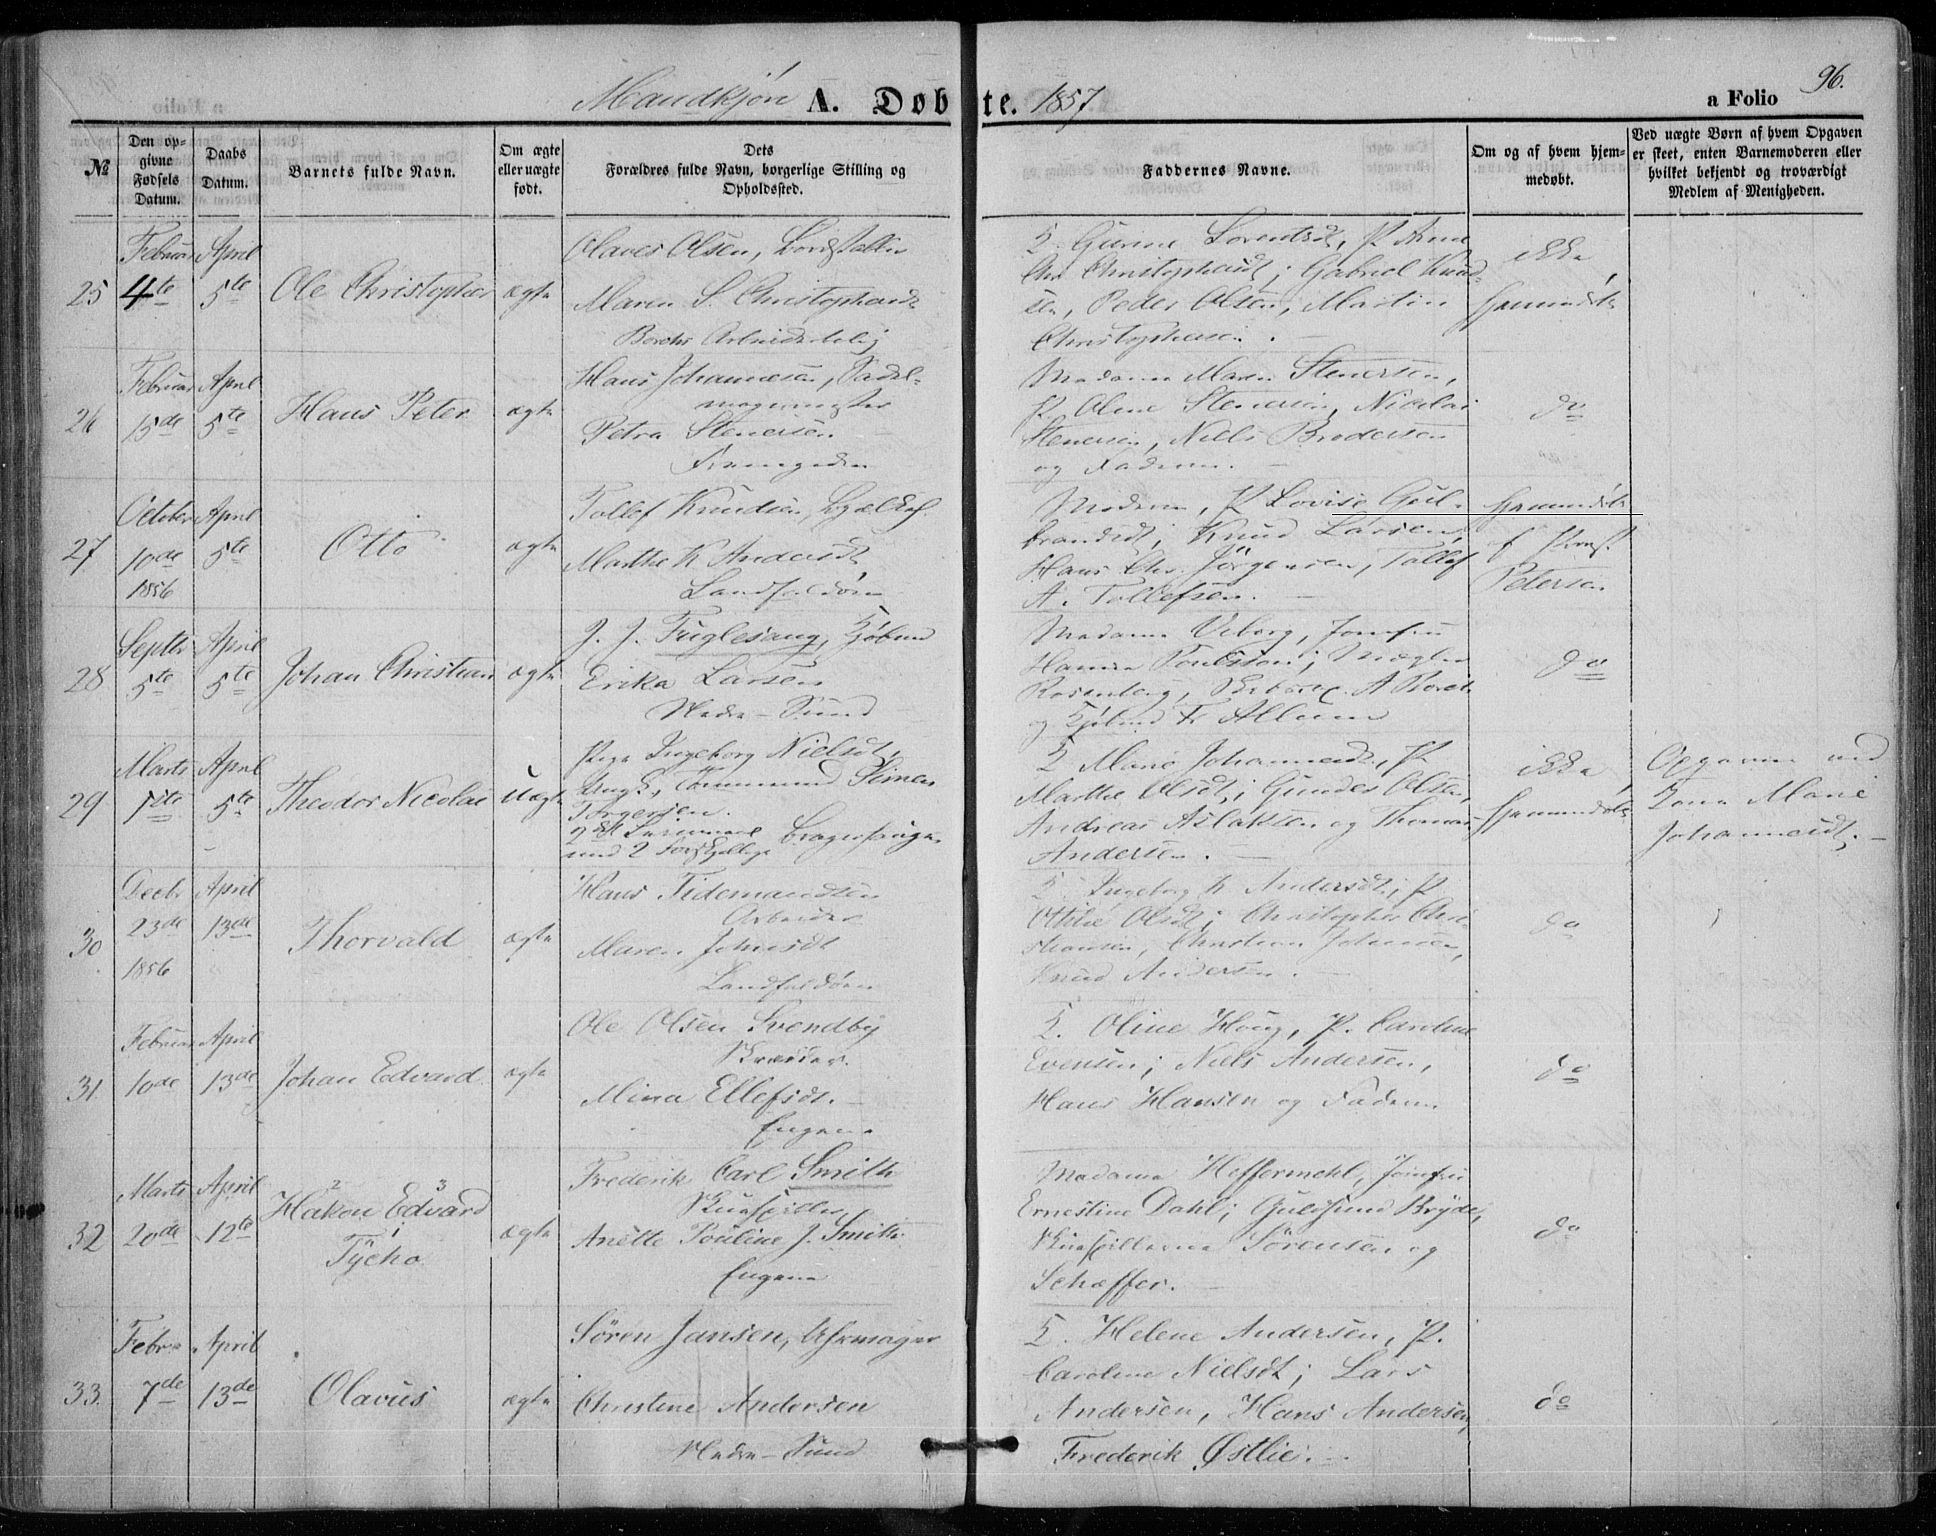 Mandkjøn A. Døbte. 1857
a Folio 96.
№
Den opgivne Fødsels Datum.
Daabs Datum.
Barnets fulde Navn.
Om ægte eller uægte født.
Dets Forældres fulde Navn, borgerlige Stilling og Opholdssted.
Faddernes Navne.
Om og af hvem hjemmedøbt.
Ved uægte Børn af hvem Opgaven er skeet, enten Barnemoderen eller hvilket bekjendt og troværdigt Medlem af Menigheden.
25
Februar 4te
April 5te
Ole Christopher
ægte
Olaves Olsen,
Maren S. Christophersdt
K. Gurine Lorentsdt, P. Anne
Christophersdt; Gabriel Knud-
sen, Peder Olsen, Martin
Christophersen.
ikke
hjemmedøbt
26
Februar 15de
April 5te
Hans Peter
ægte
Hans Johannesen, Sadel-
magermester
Petra Stenersen
Madame Maren Stenersen,
P. Oline Stenersen, Nicolai
Stenersen, Niels Brodersen
og Faderen.
do
27
October 10de 1856
April 5te
Otto
ægte
Tollef Knudsen,
Marthe K. Andersdt
Landfaldøen
Moderen, P. Lovise Gul-
brandsdt; Knud Larsen,
Hans Chr. Jørgensen, Tollef
A. Tollefsen.
hjemmedøbt
af
Petersen
28
Septbr 5te
April 5te
Johan Christian
ægte
J. J. Fuglesang, Kjøbmd
Erika Larsen
Nedre-Sund
Madame Viborg, Jomfru
Hanna Poulsson; Mægler
Rosenberg,
og Kjøbmd Fr. Allum
do
29
Marts 1ste
April 5te
Theodor Nicolai
uægte
Pige Ingeborg Nielsdt,
Ungk. Tømmermd Simen
Torgersen.
2det Leiermaal
med 2 forskjellige
K. Marie Johannesdt, P.
Marthe Olsdt; Gunder Olsen,
Andreas Aslaksen og Thomas
Andersen.
ikke
hjemmedøbt
Opgaven ved
Kone Marie
Johannesdt.
30
Decbr 23de 1856
April 13de
Thorvald
ægte
Hans Tidemandsen
Arbeider
Maren Johnsdt
Landfaldøen
K. Ingeborg K. Andersdt; P.
Othilie Olsdt; Christopher Chri-
stiansen, Christian Johnsen,
Knud Andersen.
do
31.
Februar 10de
April 13de
Johan Edvard
ægte
Ole Olsen Svendby
Skræder.
Mina Ellefsdt.
Engene
K. Oline Houg, P. Caroline
Evensen; Niels Andersen,
Hans Hansen og Faderen.
do
32
Marts 20de
April 12te
2 3
Hakon Edvard
1
Tycho
ægte
Frederik Carl Smith
Skuespiller
Anette Pouline J. Smith
Engene
Madame Heffermehl, Jomfru
Ernestine Dahl; Guldsmed Bryde,
Skuespillerne Sørensen og
Schæffer.
do
33.
Febr. 7de
April 13de
Olavus
ægte
Søren Jansen, Uhrmager
Christine Andersen
Nedre-Sund
K. Helene Andersen, P.
Caroline Nielsdt; Lars
Andersen, Hans Andersen,
Frederik Østlie.
do